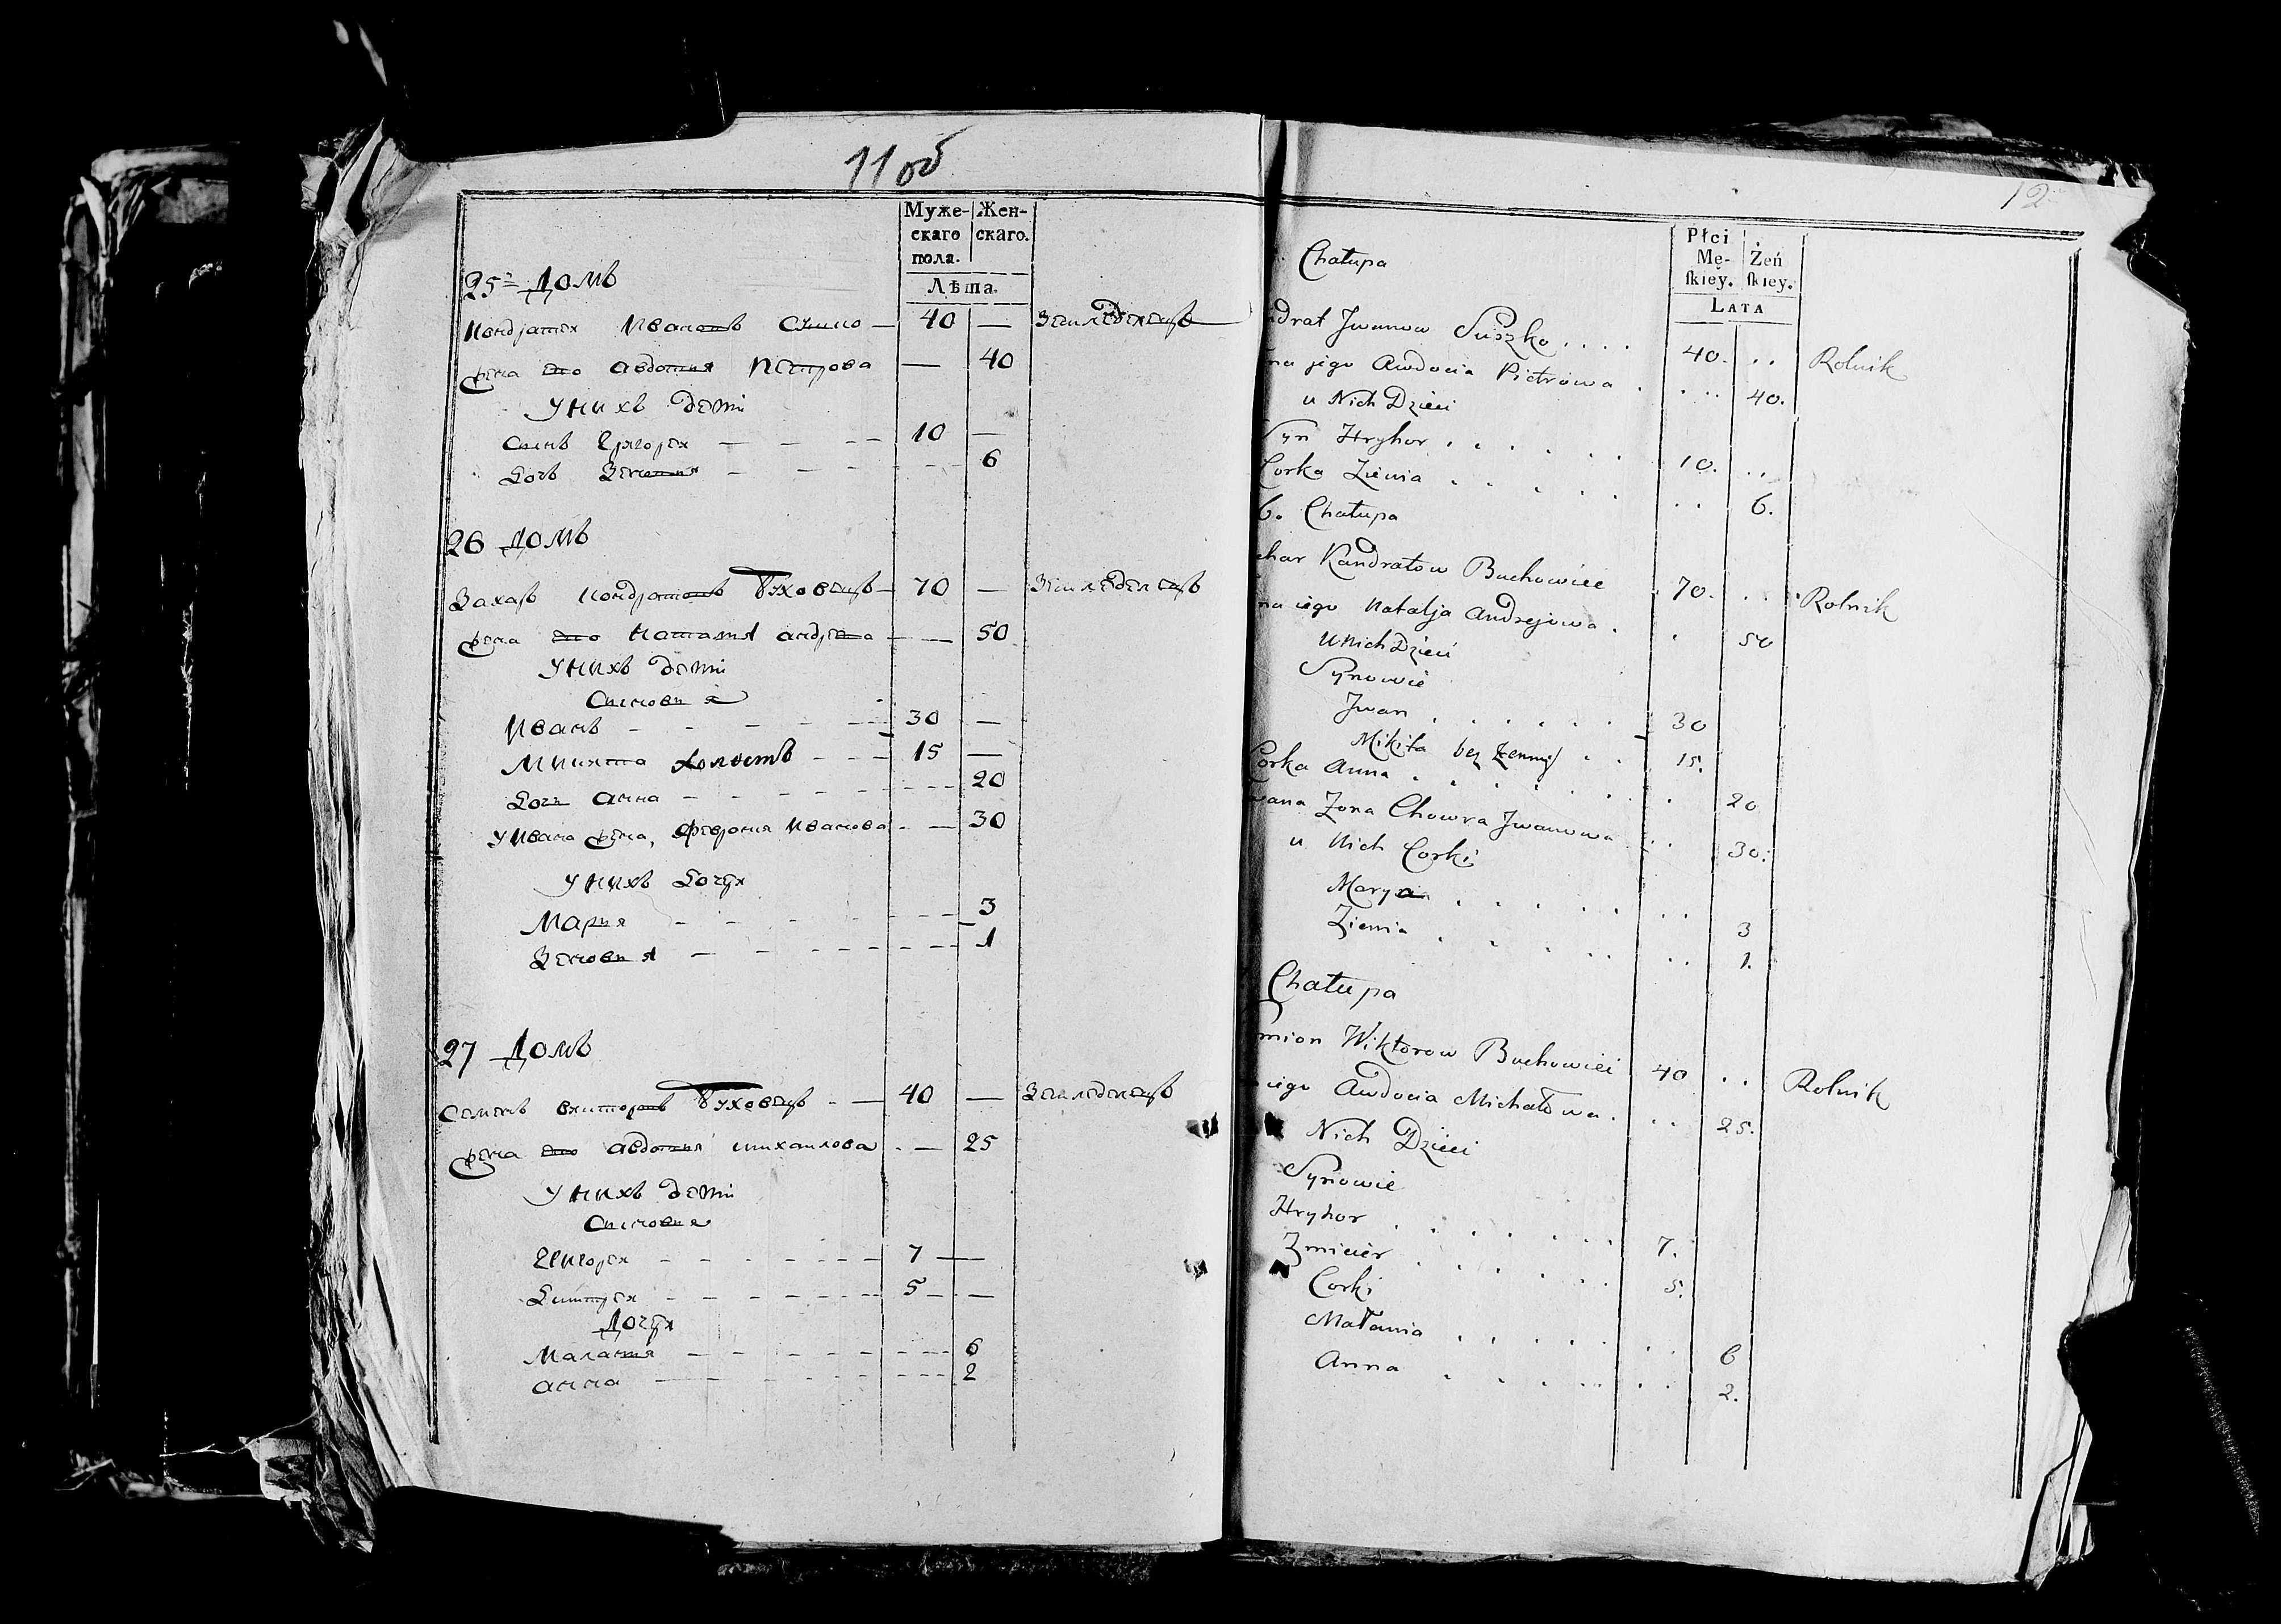 11 об
Муже- Жен-
скаго скаго.
пола.
Лѣта.
25й Домъ
Кондратей Ивановъ Сушко — 40 — Земледелецъ
жена его Авдотия Петрова — 40
У нихъ дети
Сынъ Григорей — — — 10 —
Дочь Зеновия — — — 6
26 Домъ
Захаръ Кондратовъ Буховецъ — 70 — Земледелецъ
жена его Наталия Андреева — 50
У нихъ дети
Сыновья
Иванъ — — — 30 —
Микита холостъ — — — 15 —
Дочь Анна — — — 20
У Ивана жена, Феврония Иванова — 30
У нихъ дочери
Мария — — — 3
Зеновия — — — 1
27 Домъ
Семенъ Викторовъ Буховецъ — 40 — Земледелецъ
жена его Авдотия Михаилова — 25
У нихъ дети
Сыновья
Григорей — — — 7 —
Дмитрей — — — 5 —
Дочери
Малания — — — 6
Анна — — — 2
12
Płci
Mę- Żeń
skiey. skiey.
LATA
Chałupa
ndrat Jwanow Suszko . . . . 40. . . Rolnik
na jego Awdocia Pietrowa . . . . 40.
u Nich Dzieci
Syn Hryhor . . . . . . 10. . .
Corka Zienia . . . . . . . 6.
6. Chałupa
char Kandratow Buchowiec . 70. . . Rolnik
na iego Natalja Andrejowa . . 50
u Nich Dzieci
Synowie
Jwan . . . . . . 30
Mikita bez Żenny . . 15.
Corka Anna . . . . . . 20
wana Żona Chowra Jwanowa . . 30.
u Nich Corki
Marya . . . . . . . 3
Zienia . . . . . . . 1.
Chałupa
mion Wiktorow Buchowiec 40 . . Rolnik
iego Awdocia Michałowa . . . 25.
Nich Dzieci
Synowie
Hryhor . . . . . . 7.
Zmicier . . . . . . 5.
Corki
Małania . . . . . . . 6
Anna . . . . . . . 2.